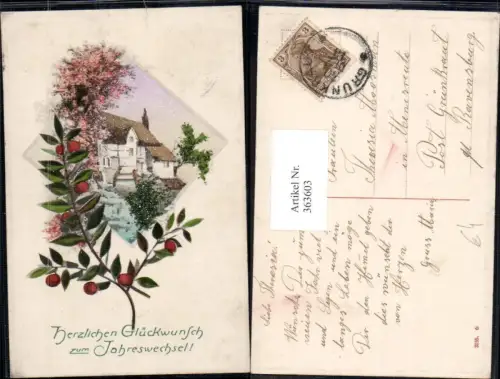 Herzlichen Glückwunsch
zum Jahreswechsel!
GRÜNK
3
3
Fräulein
Theresia
in
Post Grünkraut
Ravensburg
Artikel Nr.
363603
Liebe Theresia!
Wünsche Dir zum
neuen Jahre viel Glück
und Segen und ein
langes Leben möge
Dir der Himmel geben
dies wünscht dir
von Herzen
Gruss Maria
6